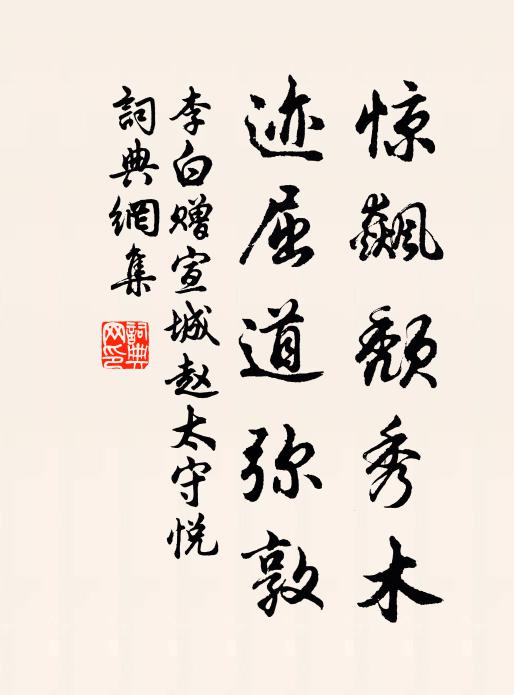 惊飙颓秀木
迹屈道弥敦
李白赠宣城赵太守悦
詞典網集
詞典網印